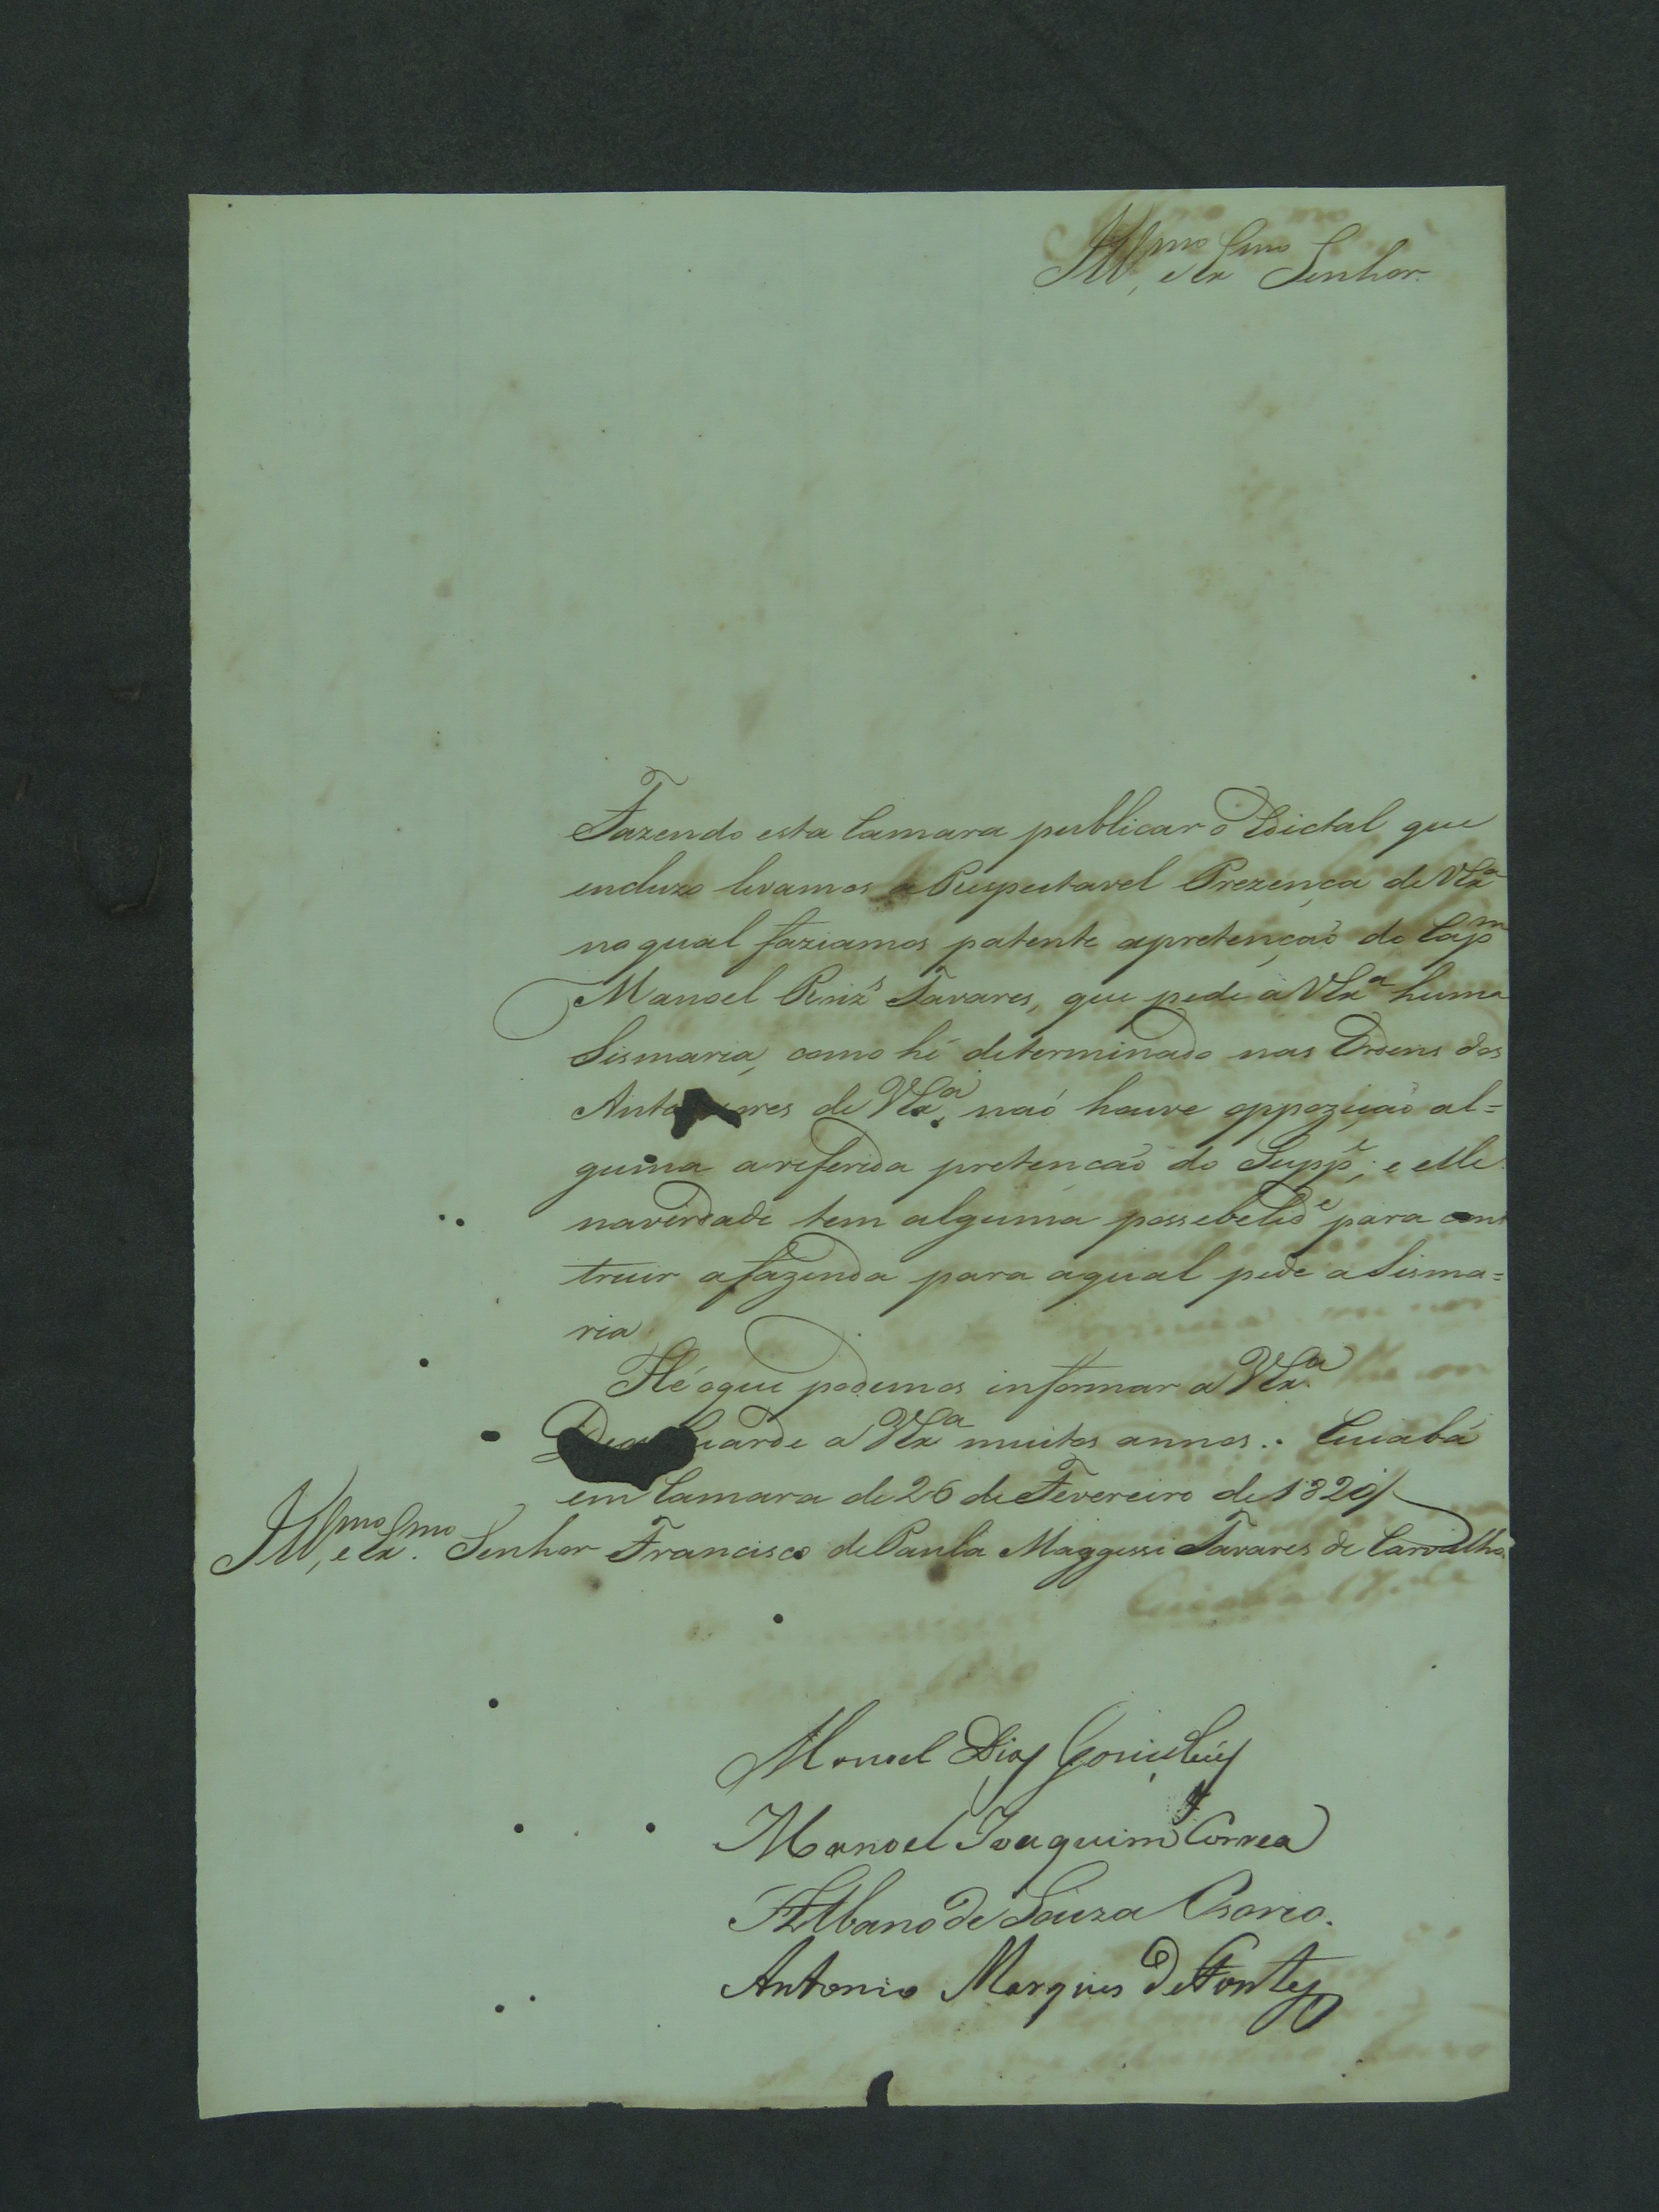 Ill.mo e Ex.mo Senhor.
Fazendo esta Camara publicar o Edictal que
incluzo levamos a Respeitavel Prezença de VEx.a
no qual faziamos patente apretenção do Cap.m
Manoel Roiz Tavares, que pede a VEx.a huma
Sismaria, como hé determinado nas Ordens dos
de VEx.a, naó houve oppozição al=
guma areferida pretencaõ do Supp.e; e elle
naverdade tem alguma possebelid.e para cons
truir afazenda para aqual pede a Sisma=
ria
Hé oque podemos informar a VEx.a
Deos Guarde a VEx.a muitos annos. Cuiabá
em Camara de 26 de Fevereiro de 1820
Ill.mo, e Ex.mo Senhor Francisco de Paula Maggessi Tavares de Carvalho.
Manoel Dias
Manoel Joaquim Correa
Albano de Souza Osorio.
Antonio Marques de Fontes